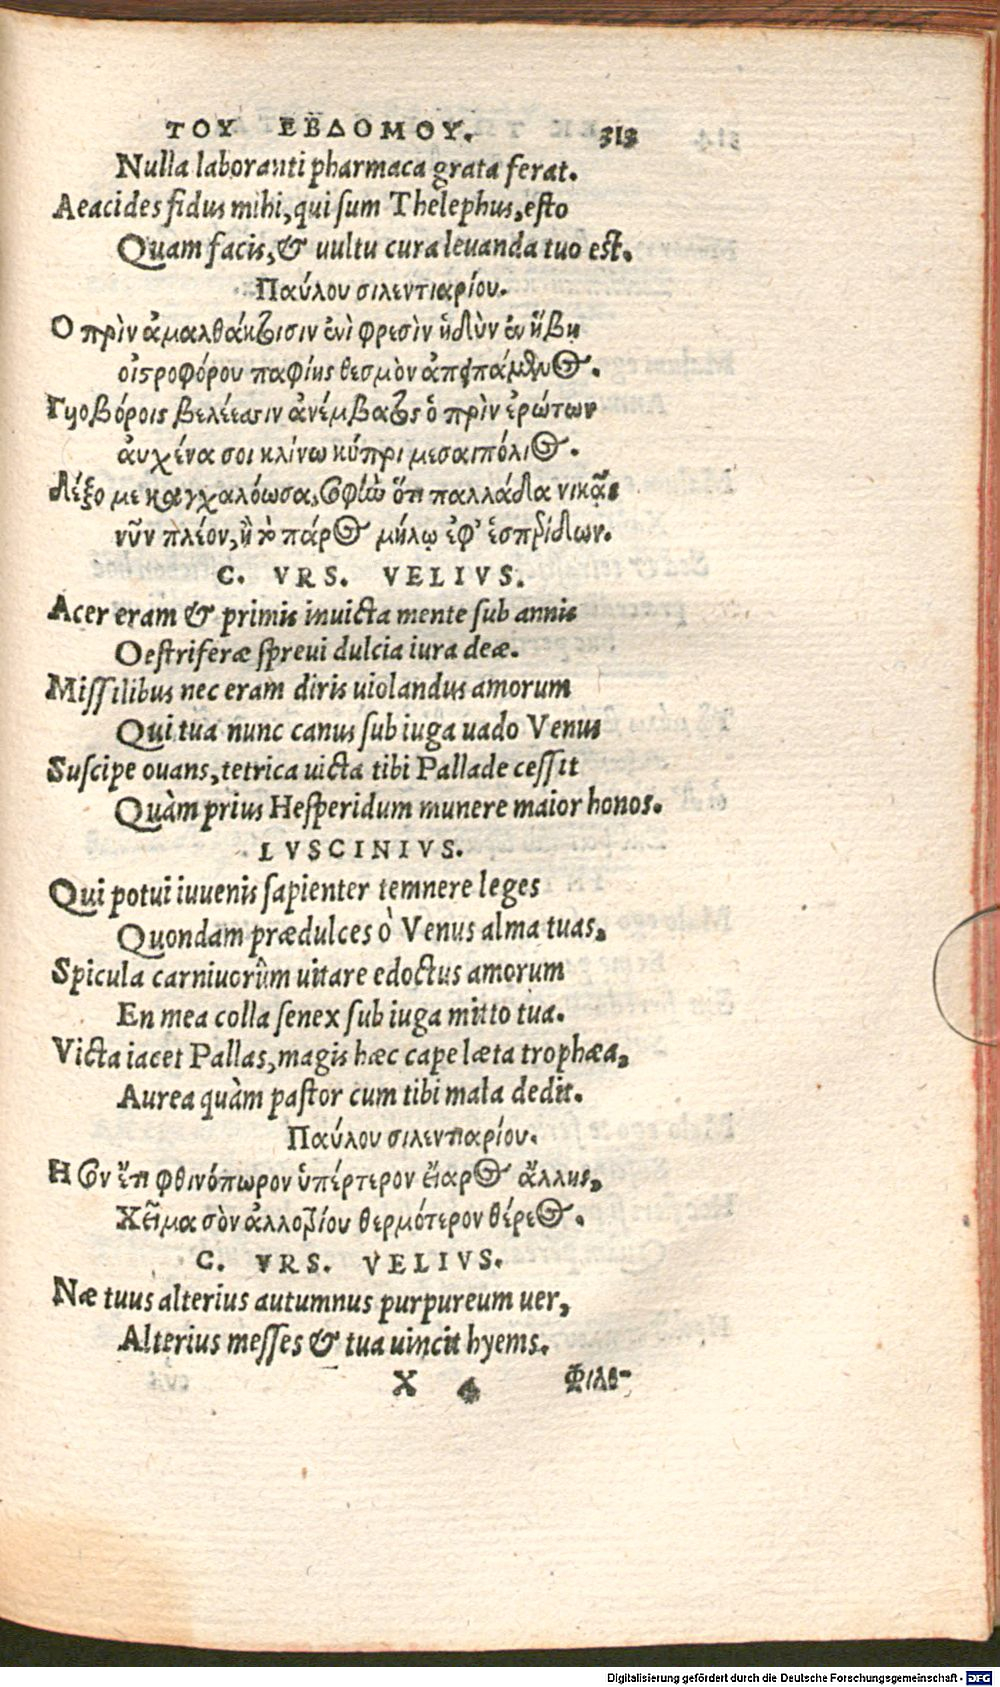 ΤΟΥ ΕΒΔΟΜΟΥ. 313
Nulla laboranti pharmaca grata ferat.
Aeacides fidus mihi, qui sum Thelephus, esto
Quam facis, & vultu cura levanda tuo est.
Παύλου σιλεντιαρίου.
Ο πρὶν ἀμαλθάκτοισιν ἐνὶ φρεσὶν ἡδὺν ἐν ἥβῃ
οἰστροφόρου παφίης θεσμὸν ἀπειπάμενος.
Γυοβόροις βελέεσσιν ἀνέμβατος ὁ πρὶν ἐρώτων
ἀυχένα σοι κλίνω κύπρι μεσαιπόλιος.
Δέξο με καγχαλόωσα, σοφὴν ὅτι παλλάδα νικᾷς
νῦν πλέον, ἢ τὸ πάρος μήλῳ ἐφ' ἑσπερίδων.
C. VRS. VELIVS.
Acer eram & primis invicta mente sub annis
Oestriferæ sprevi dulcia iura deæ.
Missilibus nec eram diris uiolandus amorum
Qui tua nunc canus sub iuga uado Venus
Suscipe ovans, tetrica uicta tibi Pallade cessit
Quàm prius Hesperidum munere maior honos.
LVSCINIVS.
Qui potui iuvenis sapienter temnere leges
Quondam prædulces ò Venus alma tuas,
Spicula carnivorûm uitare edoctus amorum
En mea colla senex sub iuga mitto tua.
Victa iacet Pallas, magis hæc cape læta trophæa,
Aurea quàm pastor cum tibi mala dedit.
Παύλου σιλεντιαρίου.
Η σὸν ἔτι φθινόπωρον ὑπέρτερον εἴαρος ἄλλης,
Χεῖμα σὸν ἀλλοτρίου θερμότερον θέρεος.
C. VRS. VELIVS.
Næ tuus alterius autumnus purpureum uer,
Alterius messes & tua uincit hyems.
X 4 Φιλο-